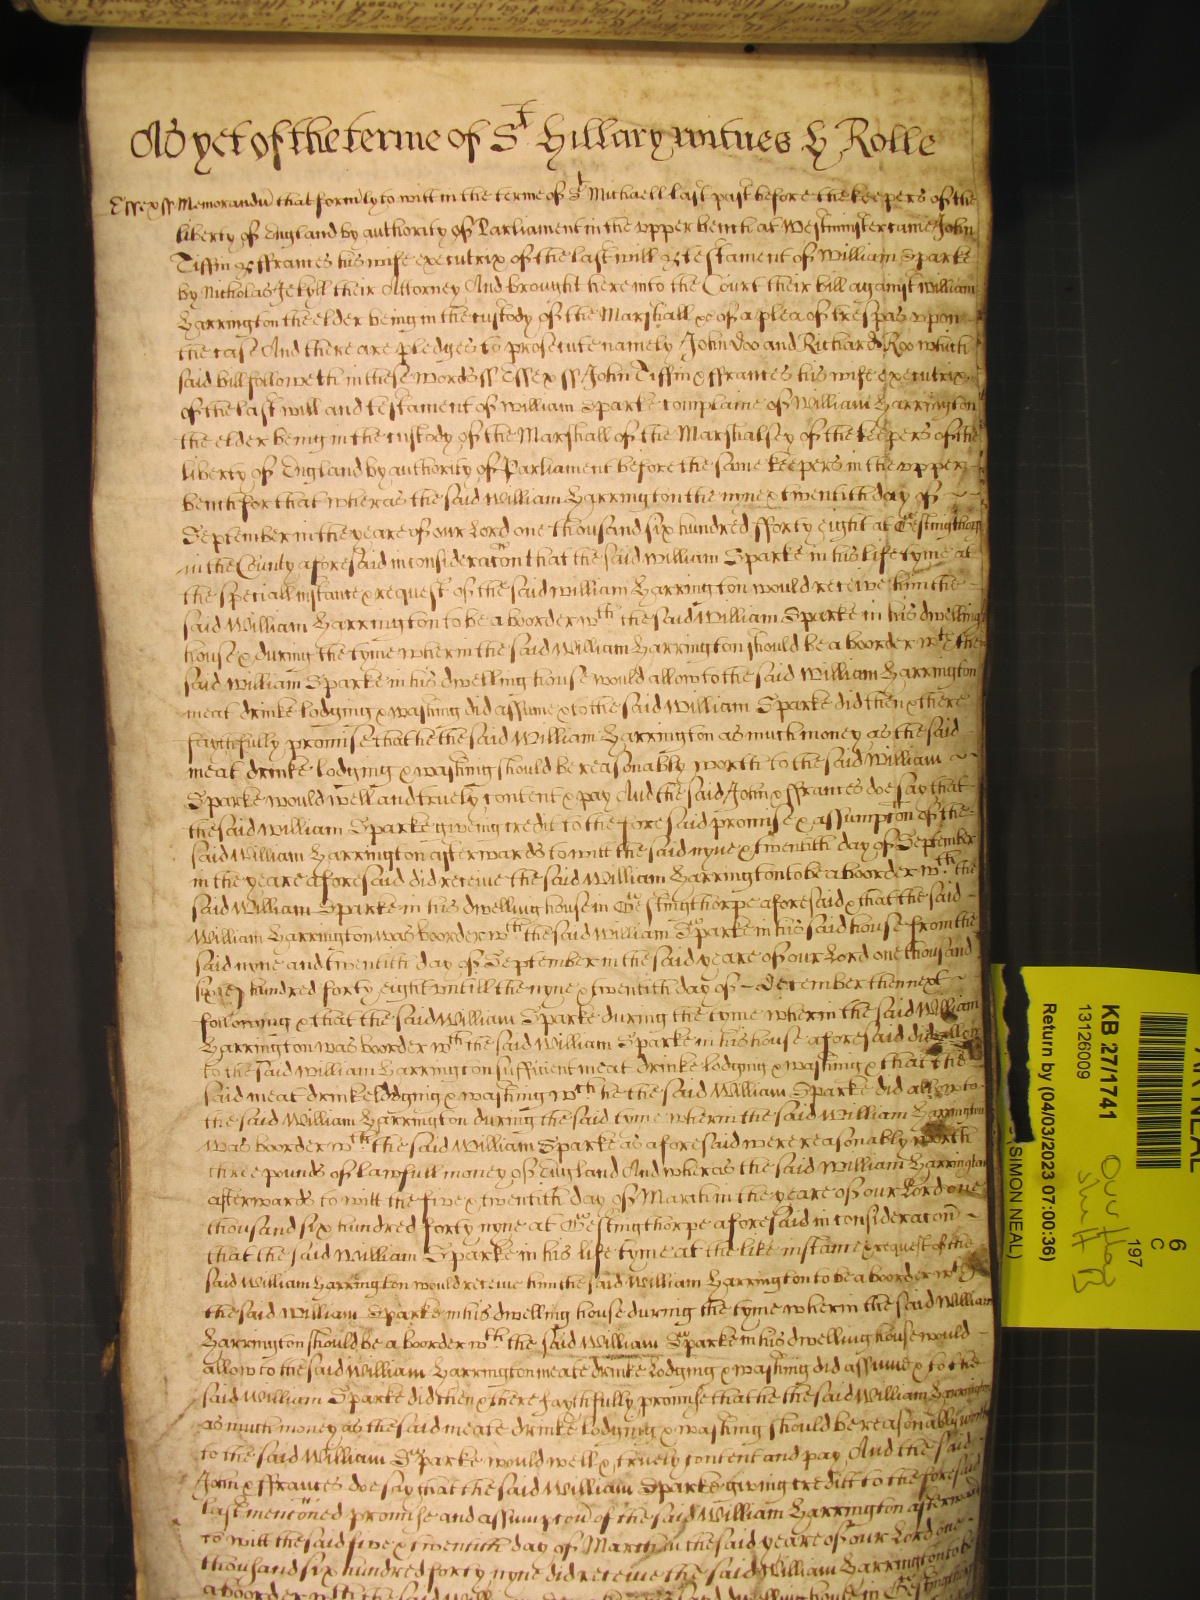 As yet of the terme of St Hillary witnes H Rolle
Essex ss Memorandū that formly to witt in the terme of St Michaell last past before the keepers of the
liberty of England by authority of Parliament in the vpper bench at Westminster came John
Tiffin & ffrances his wife executrix of the last will & testament of William Sparke
by Nicholas Jekyll their Attorney And brought here into the Court their bill against William
Harrington the elder being in the custody of the Marshall &c of a plea of trespas vpon
the case And there are pledges to prosecute namely John Doo and Richard Roo which
said bill followeth in these words ss Essex ss John Tiffin & ffrances his wife executrix
of the last will and testament of William Sparke complaine of William Harrington
the elder being in the custody of the Marshall of the Marshalsey of the keepers of the
liberty of England by authority of Parliament before the same keepers in the vpper
bench for that wheras the said William Harrington the nyne & twentith day of
September in the yeare of our Lord one thousand six hundred fforty eight at Gestingthorp
in the County aforesaid in consideracon that the said William Sparke in his life tyme at
the speciall instance & request of the said William Harrington would receive him the
said William Harrington to be a boorder wth the said William Sparke in his dwelling
house & during the tyme wherin the said William Harrington should be a boorder wth the
said William Sparke in his dwelling house would allow to the said William Harrington
meat drinke lodging & washing did assume & to the said William Sparke did then & there
faythfully promise that he the said William Harrington as much money as the said
meat drinke lodging & washing should be reasonably worth to the said William
Sparke would well and truely content & pay And the said John & ffrances doe say that
the said William Sparke giveing credit to the foresaid promise & assumpton of the
said William Harrington afterwards to witt the said nyne & twentith day of September
in the yeare aforesaid did receive the said William Harrington to be a boorder wth the
said William Sparke in his dwelling house in Gestingthorpe aforesaid & that the said
William Harrington was boorder wth the said William Sparke in his said house from the
said nyne and twentith day of September in the said yeare of our Lord one thousand
six hundred forty eight vntill the nyne & twentith day of December then next
following & that the said William Sparke during the tyme wherin the said William
Harrington was boorder wth the said William Sparke in his house aforesaid did allow
to the said William Harrington sufficient meat drinke lodging & washing & that the
said meat drinke lodging & washing wch he the said William Sparke did allow to
the said William Harrington during the said tyme wherin the said William Harrington
was boorder wth the said William Sparke as aforesaid were reasonably worth
three pounds of lawfull money of England And wheras the said William Harrington
afterwards to witt the five & twentith day of March in the yeare of our Lord one
thousand six hundred forty nyne at Gestingthorpe aforesaid in consideracon
that the said William Sparke in his life tyme at the like instance & request of the
said William Harrington would receive him the said William Harrington to be a boorder wth
the said William Sparke in his dwelling house during the tyme wherin the said William
Harrington should be a boorder wth the said William Sparke in his dwelling house would
allow to the said William Harrington meate drinke lodging & washing did assume & to the
said William Sparke did then & there faythfully promise that he the said William Harrington
as much money as the said meate drinke lodging & washing should be reasonably worth
to the said William Sparke would well & truely content and pay And the said
John & ffrances doe say that the said William Sparke giving creditt to the foresaid
last mencōned promise and assumpcōn of the said William Harrington afterwards
to witt the said five & twentith day of March in the said yeare of our Lord one
thousand six hundred forty nyne did receive the said William Harrington to be
a boorder wth the said William Sparke in his said dwelling house in Gestingthorpe
KB 27/1741
13126009
Return by (04/03/2023 07:00:36)
(SIMON NEAL)
6
C
197